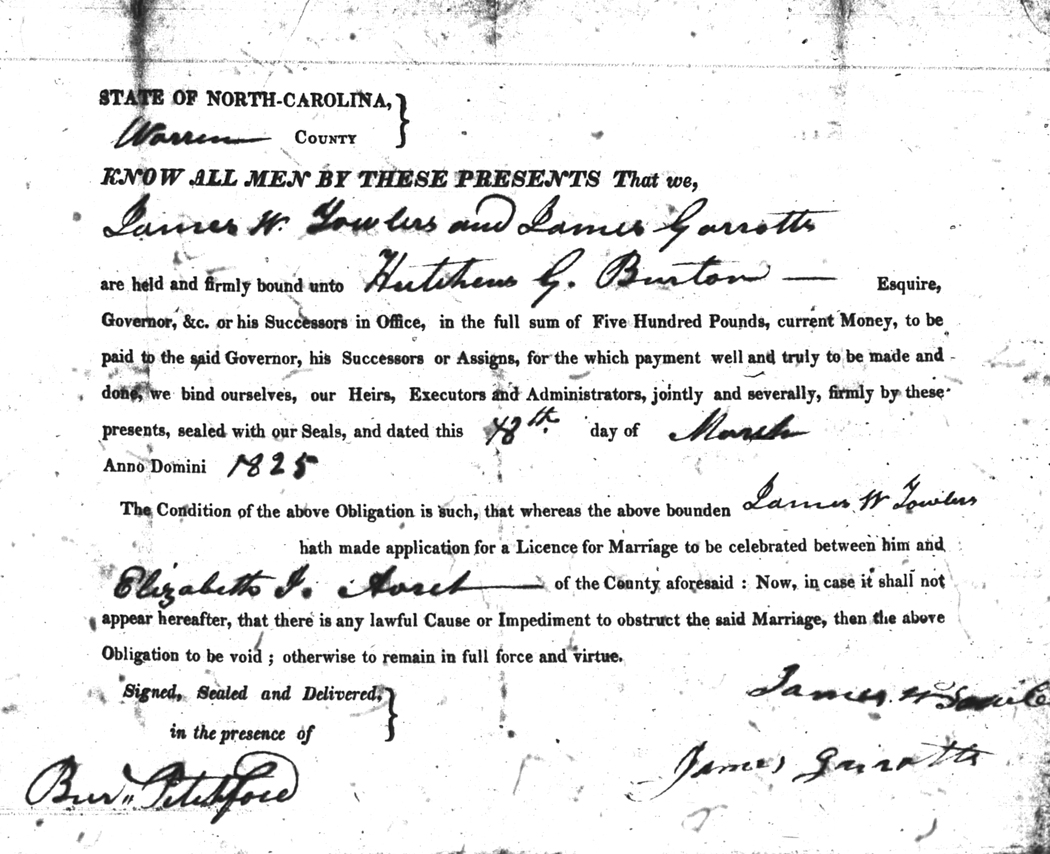 STATE OF NORTH-CAROLINA,
Warren COUNTY
KNOW ALL MEN BY THESE PRESENTS That we,
James W. Towlers and James Garrotts
are held and firmly bound unto Hutchens G. Burton — Esquire,
Governor, &c. or his Successors in Office, in the full sum of Five Hundred Pounds, current Money, to be
paid to the said Governor, his Successors or Assigns, for the which payment well and truly to be made and
done, we bind ourselves, our Heirs, Executors and Administrators, jointly and severally, firmly by these
presents, sealed with our Seals, and dated this 18th. day of March
Anno Domini 1825
The Condition of the above Obligation is such, that whereas the above bounden James W Towlers
hath made application for a Licence for Marriage to be celebrated between him and
Elizabeth of the County aforesaid : Now, in case it shall not
appear hereafter, that there is any lawful Cause or Impediment to obstruct the said Marriage, then the above
Obligation to be void ; otherwise to remain in full force and virtue.
Signed, Sealed and Delivered,
in the presence of
James W
James Garrotts